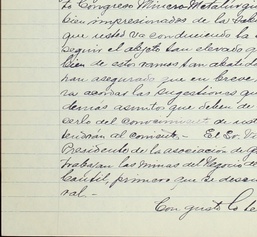 to Congreso Minero Metalurgi
bien impresionados de la
que usted va conduciendo la
seguir el objeto tan elevado q
bien de estos ramos tan abatido
han asegurado que en breve
ra acordar las sugestiones que
demás asuntos que deben de
cerlo del conocimiento de ust
tendrán al corriente.- El Sr.
Presidente de la asociación de
trabajan las minas del Negocio de
Cautil, primero que se descu
val.-
Con gusto le